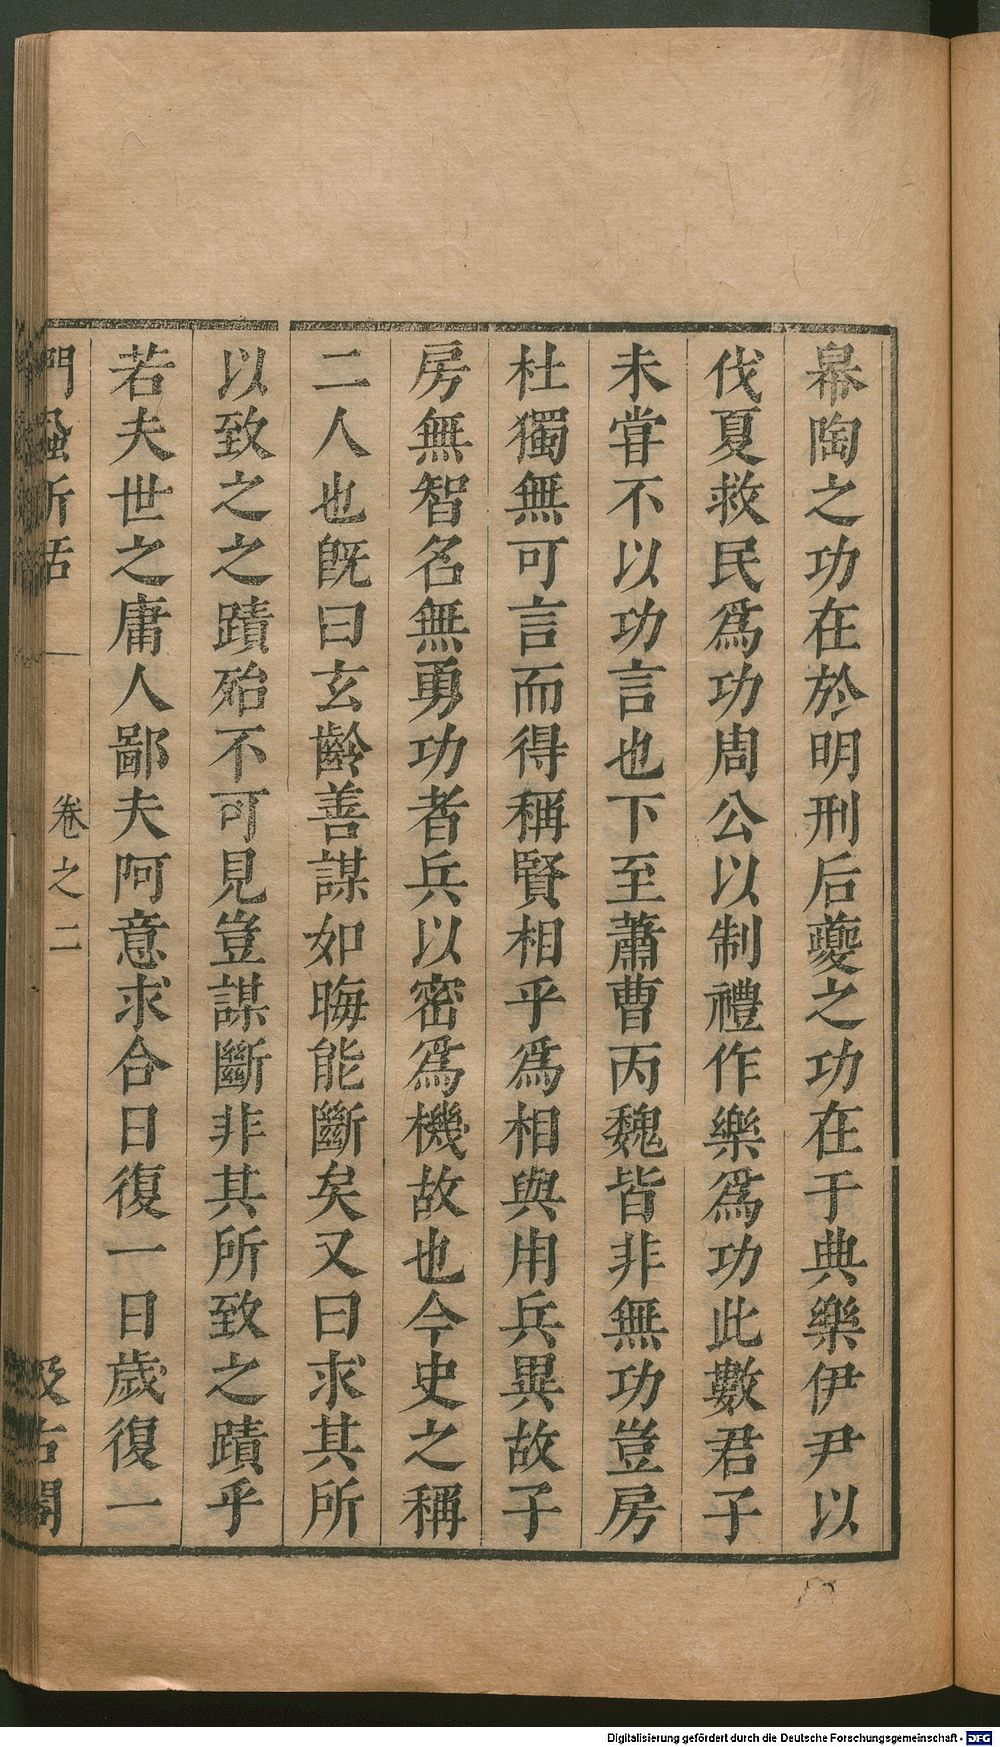 皋陶之功在於明刑后夔之功在于典樂伊尹以
伐夏救民爲功周公以制禮作樂爲功此數君子
未甞不以功言也下至蕭曹丙魏皆非無功豈房
杜獨無可言而得稱賢相乎爲相與用兵異故子
房無智名無勇功者兵以密爲機故也今史之稱
二人也旣曰玄齡善謀如晦能斷矣又曰求其所
以致之之蹟殆不可見豈謀斷非其所致之蹟乎
若夫世之庸人鄙夫阿意求合日復一日歲復一
門蝨新話
卷之二
汲古閣
Digitalisierung gefördert durch die Deutsche Forschungsgemeinschaft - DFG